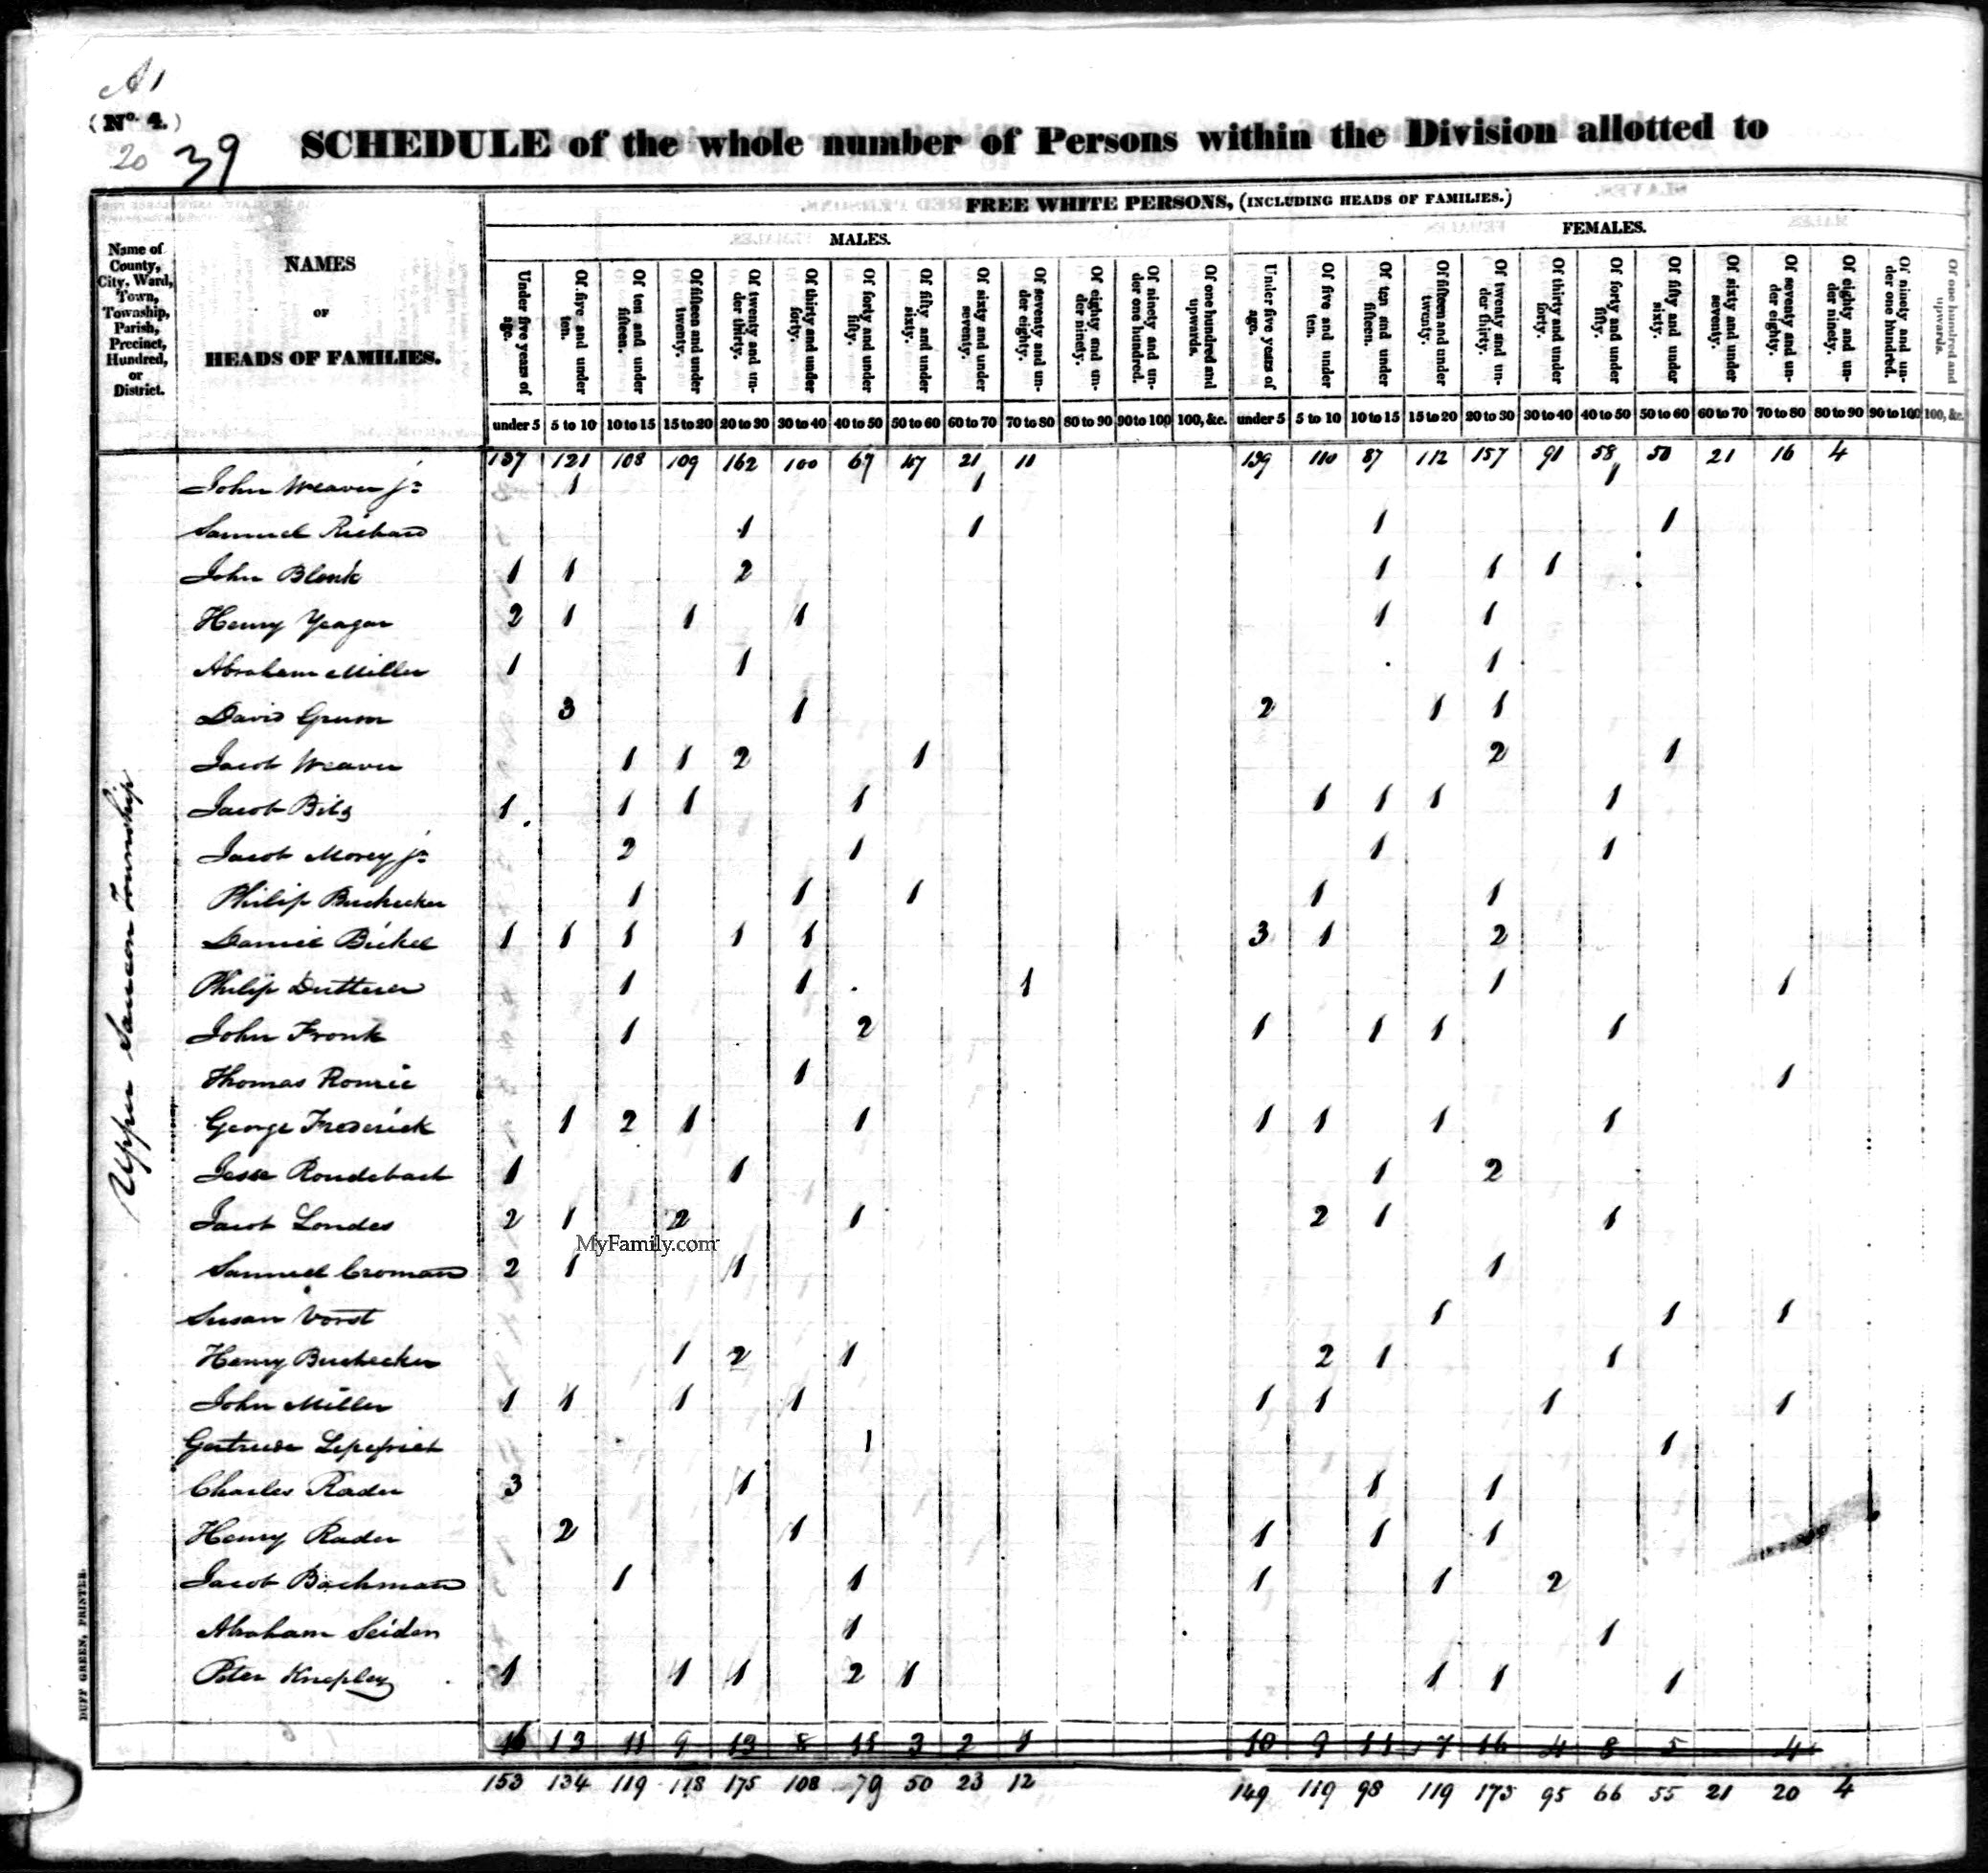 A1
(No. 4.)
20 39
SCHEDULE of the whole number of Persons within the Division allotted to
FREE WHITE PERSONS, (INCLUDING HEADS OF FAMILIES.)
MALES. FEMALES.
Name of County, City, Ward, Town, Township, Parish, Precinct, Hundred, or District.
NAMES OF HEADS OF FAMILIES.
Under five years of age. Of five and under ten. Of ten and under fifteen. Of fifteen and under twenty. Of twenty and under thirty. Of thirty and under forty. Of forty and under fifty. Of fifty and under sixty. Of sixty and under seventy. Of seventy and under eighty. Of eighty and under ninety. Of ninety and under one hundred. Of one hundred and upwards. Under five years of age. Of five and under ten. Of ten and under fifteen. Of fifteen and under twenty. Of twenty and under thirty. Of thirty and under forty. Of forty and under fifty. Of fifty and under sixty. Of sixty and under seventy. Of seventy and under eighty. Of eighty and under ninety. Of ninety and under one hundred. Of one hundred and upwards.
under 5 5 to 10 10 to 15 15 to 20 20 to 30 30 to 40 40 to 50 50 to 60 60 to 70 70 to 80 80 to 90 90 to 100 100, &c. under 5 5 to 10 10 to 15 15 to 20 20 to 30 30 to 40 40 to 50 50 to 60 60 to 70 70 to 80 80 to 90 90 to 100 100, &c.
137 121 108 109 162 100 67 47 21 11 139 110 87 112 157 91 58 50 21 16 4
John Weaver jr 1 1 1
Samuel Richard 1 1 1 1
John Blank 1 1 2 1 1 1
Henry Yeager 2 1 1 1 1 1
Abraham Miller 1 1 1
David Grum 3 1 2 1 1
Jacob Weaver 1 1 2 1 2 1
Jacob Bitz 1 1 1 1 1 1 1 1
Jacob Morey jr 2 1 1 1
Philip Buchecker 1 1 1 1 1
Daniel Bickel 1 1 1 1 1 3 1 2
Philip Dutterer 1 1 1 1 1
John Fronk 1 2 1 1 1 1
Thomas Romic 1 1
George Frederick 1 2 1 1 1 1 1 1
Jesse Roudebach 1 1 1 2
Jacob Londes 2 1 2 1 2 1 1
MyFamily.com
Samuel Croman 2 1 1 1
Susan Vorst 1 1 1
Henry Buchecker 1 2 1 2 1 1
John Miller 1 1 1 1 1 1 1 1
Gertrude 1 1
Charles Rader 3 1 1 1
Henry Rader 2 1 1 1 1
Jacob Bachman 1 1 1 1 2
Abraham Seiden 1 1
Peter Knepley 1 1 1 2 1 1 1 1
Upper Saucon Township
16 13 11 9 13 8 11 3 2 1 10 9 11 7 16 4 8 5 4
153 134 119 118 175 108 79 50 23 12 149 119 98 119 173 95 66 55 21 20 4
DUFF GREEN, PRINTER.